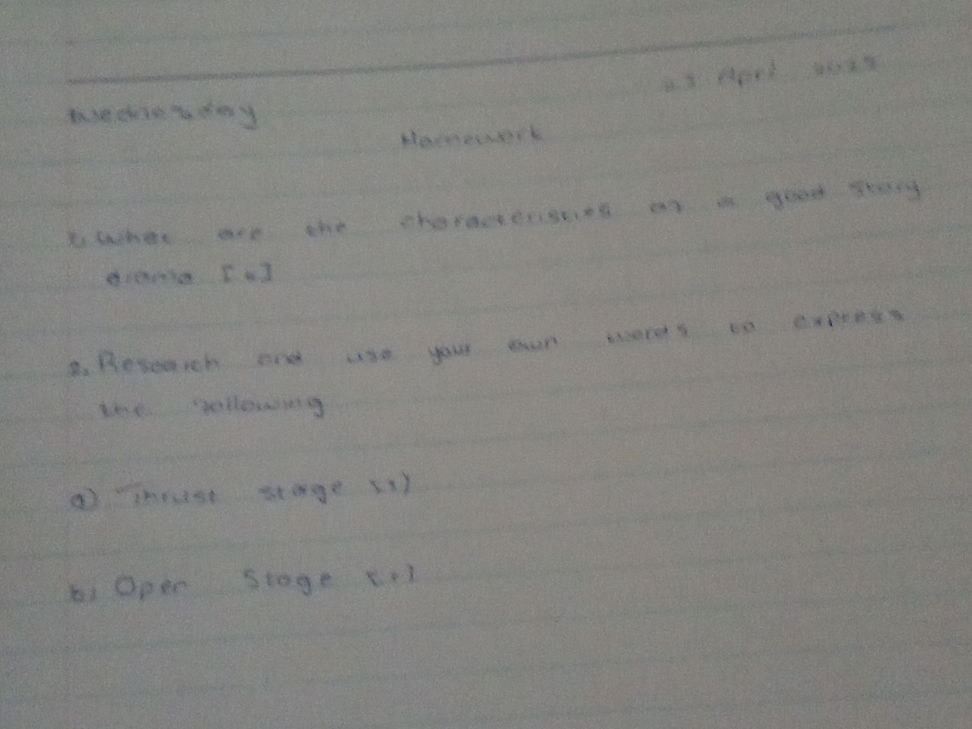 Wednesday
23 April 2025
Homework
1. What are the characteristics of a good story
drama [4]
2. Research and use your own words to express
the following
a) Thrust stage
b) Open Stage